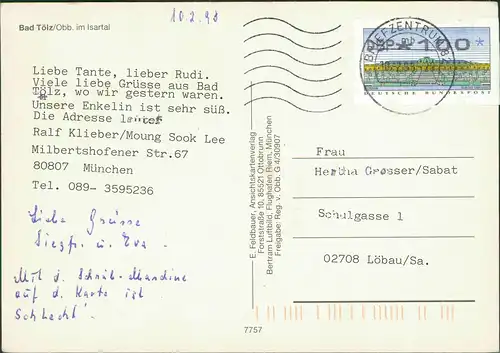 10.2.98
Bad Tölz/Obb. im Isartal
Liebe Tante, lieber Rudi.
Viele liebe Grüsse aus Bad
Tölz, wo wir gestern waren.
Unsere Enkelin ist sehr süß.
Die Adresse lautet
Ralf Klieber/Moung Sook Lee
Milbertshofener Str.67
80807 München
Tel. 089- 3595236
Liebe Grüsse
Siegfr. u. Eva.
Mit d. Schreib-Maschine
auf d. Karte ist
schlecht.
E. Feldbauer, Ansichtskartenverlag
Forststraße 10, 85521 Ottobrunn
Bertram Luftbild, Flughafen Riem, München
Freigabe: Reg. v. Obb. G 4/30907
7757
BRIEFZENTRUM
100
DEUTSCHE BUNDESPOST
Frau
Hertha Grosser/Sabat
Schulgasse 1
02708 Löbau/Sa.